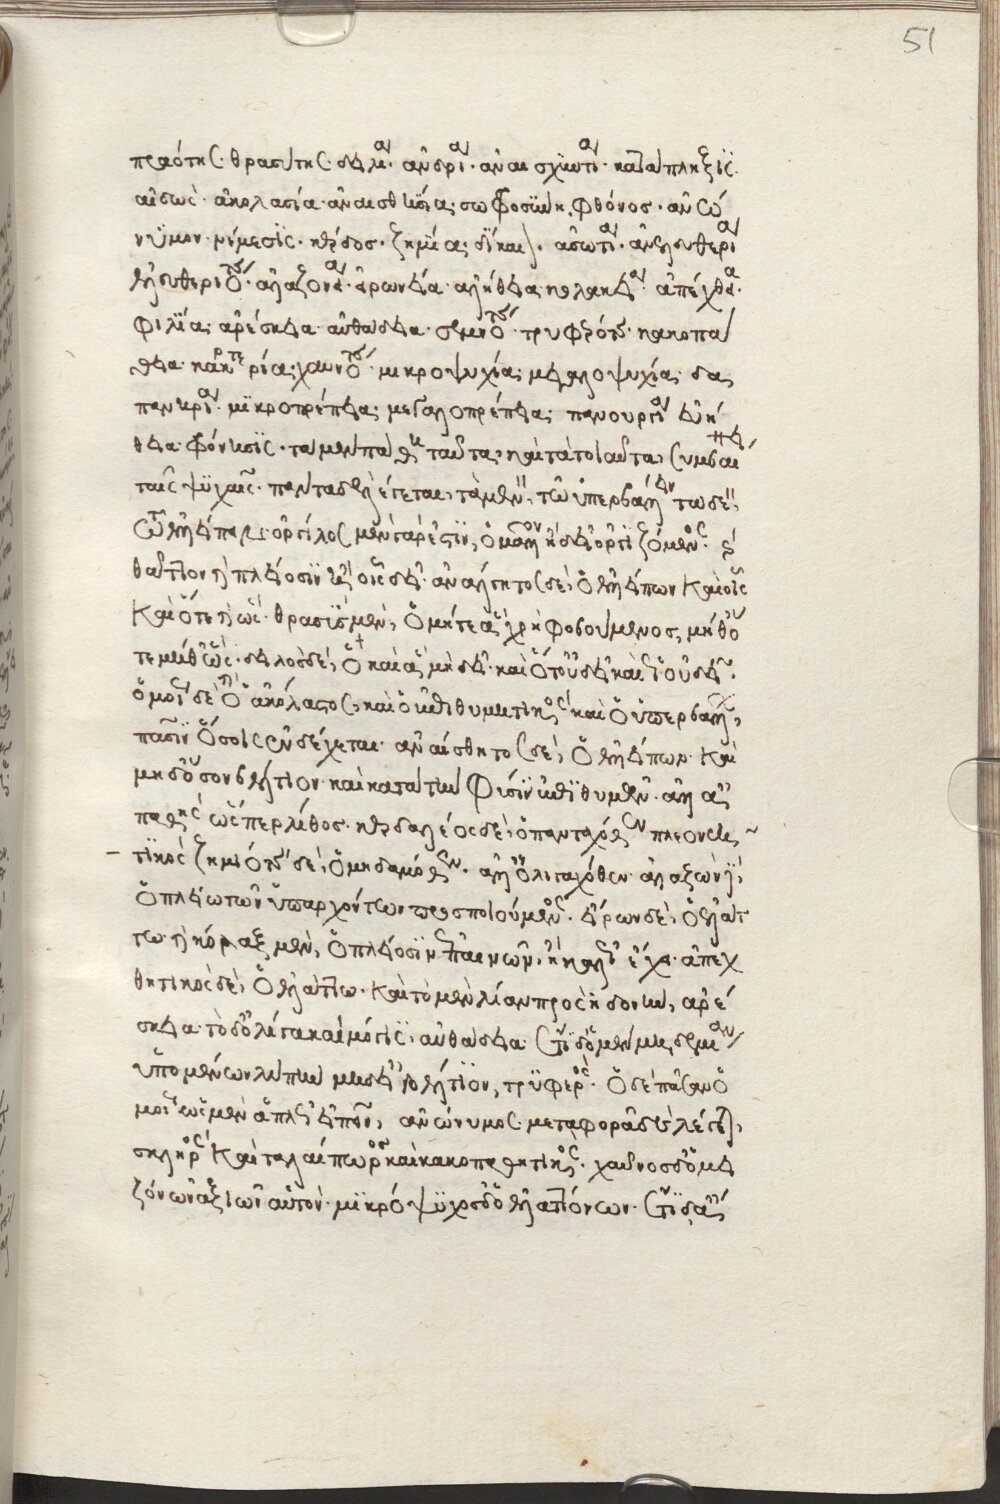 51
πραότης· θρασύτης· δειλία· ἀνδρία· ἀναισχυντία· κατάπληξις·
αἰδώς· ἀκολασία· ἀναισθησία· σωφροσύνη· φθόνος· ἀνώ
νυμον· νέμεσις· κέρδος· ζημία· δίκαιον· ἀσωτία· ἀνελευθερία
ἐλευθεριότης· ἀλαζονεία· εἰρωνεία· ἀλήθεια· κολακεία· ἀπέχθεια·
φιλία· ἀρέσκεια· αὐθάδεια· σεμνότης· τρυφερότης· κακοπά
θεια· καρτερία· χαυνότης· μικροψυχία· μεγαλοψυχία· δα
πανηρία· μικροπρέπεια· μεγαλοπρέπεια· πανουργία· εὐή
θεια· φρόνησις· τὰ μὲν πάθη ταῦτα, καὶ τὰ τοιαῦτα, συμβαίνει
ταῖς ψυχαῖς· πάντα δὲ λέγεται, τὰ μὲν, τῷ ὑπερβάλλειν τῷ δὲ,
τῷ ἐλλείπειν· ὀργίλος μὲν γάρ ἐστιν, ὁ μᾶλλον ἢ δεῖ ὀργιζόμενος·
θᾶττον ἢ πλείοσιν ἢ οἷς δεῖ· ἀνάλγητος δὲ, ὁ ἐλλείπων καὶ οἷς
καὶ ὅτε ἢ ὡς· θρασὺς μὲν, ὁ μήτε ἃ χρὴ φοβούμενος, μήθ' ὅ
τε μήθ' ὡς· δειλὸς δὲ, ὁ καὶ ἃ μὴ δεῖ· καὶ ὅτ' οὐ δεῖ καὶ ὡς οὐ δεῖ·
ὁμοίως δὲ ὁ ἀκόλαστος, καὶ ὁ ἐπιθυμητικὸς καὶ ὁ ὑπερβάλλων,
πᾶσιν ὅσοις ἐνδέχεται· ἀναίσθητος δὲ, ὁ ἐλλείπων· καὶ
μηδ' ὅσον βέλτιον καὶ κατὰ τὴν φύσιν ἐπιθυμῶν· ἀλλ' ἀ
παθὴς ὥσπερ λίθος· κερδαλέος δὲ, ὁ πανταχόθεν πλεονεκ
τικός ζημιώδης δὲ, ὁ μηδαμόθεν· ἀλλ' ὀλιγαχόθεν· ἀλαζὼν
ὁ πλείω τῶν ὑπαρχόντων προσποιούμενος· εἴρων δὲ, ὁ ἐλάτ
τω· ἢ κόλαξ μὲν, ὁ πλείοσιν ἐπαινῶν, ἢ καλῶς ἔχει· ἀπεχ
θητικὸς δὲ, ὁ ἐλάττω· καὶ τὸ μὲν λίαν πρὸς ἡδονὴν, ἀρέ
σκεια· τὸ δ' ὀλίγα καὶ μόγις, αὐθάδεια·
ὑπομένων λύπην μηδ' εἰ βέλτιον, τρυφερός· ὁ δὲ πᾶσαν ὁ
μοίως ὡς μὲν ἁπλῶς εἰπεῖν, ἀνώνυμος· μεταφορᾷ δὲ λέγεται,
σκληρὸς καὶ ταλαίπωρος καὶ κακοπαθητικός· χαῦνος δ' ὁ μει
ζόνων ἀξιῶν αὑτόν· μικρόψυχος δ' ὁ ἐλαττόνων·